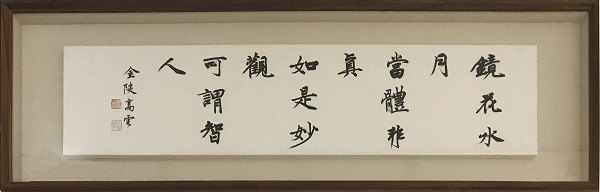 鏡花水
月
當體非
真
如是妙
觀
可謂智
人
金陵高雲